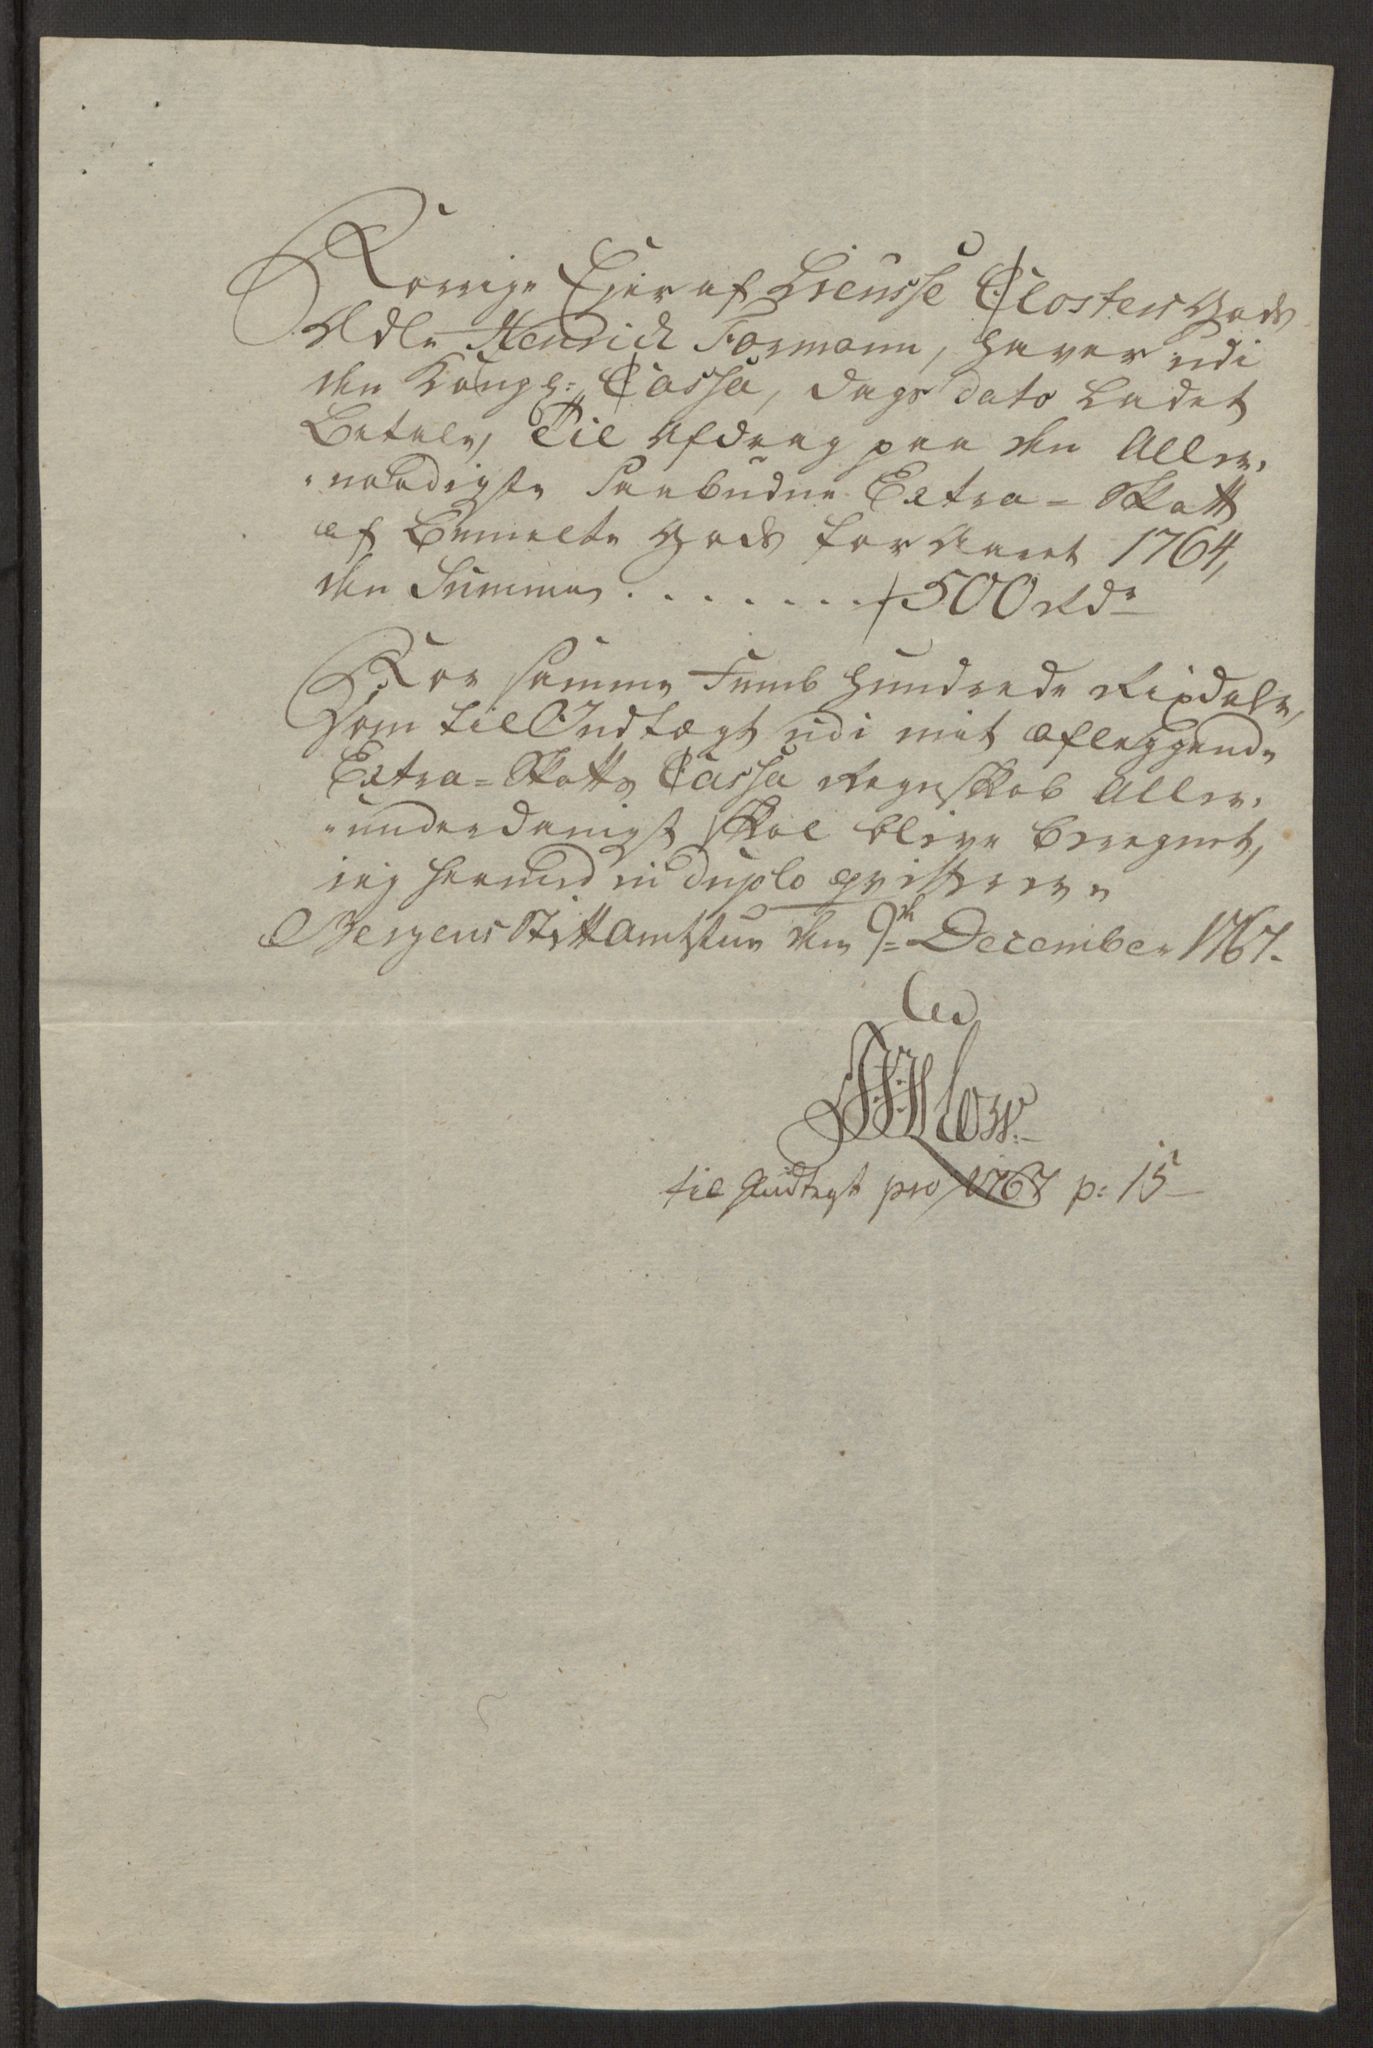 Forrige Ejer af Liensse Closters Gods
Ædle Henrich Formann, haver udi
den Kongl: Cassa, dags dato ladet
Betale, Til Afdrag paa den Aller-
-naadigste Paabudne Extra-Skatt
af Bemelte Gods for Aaret 1764,
den Summa . . . . . . . . 500 Rdr
For samme Femb Hundrede Rixdaler,
som til Indtægt udi mit aflæggende
Extra-Skatts Cassa Regnskab Aller-
-underdanigst skal blive beregnet,
jeg hermed in duplo qvitterer.
Bergens StiftAmtstue den 9de December 1767.
til Indtægt pro 1767 p: 15